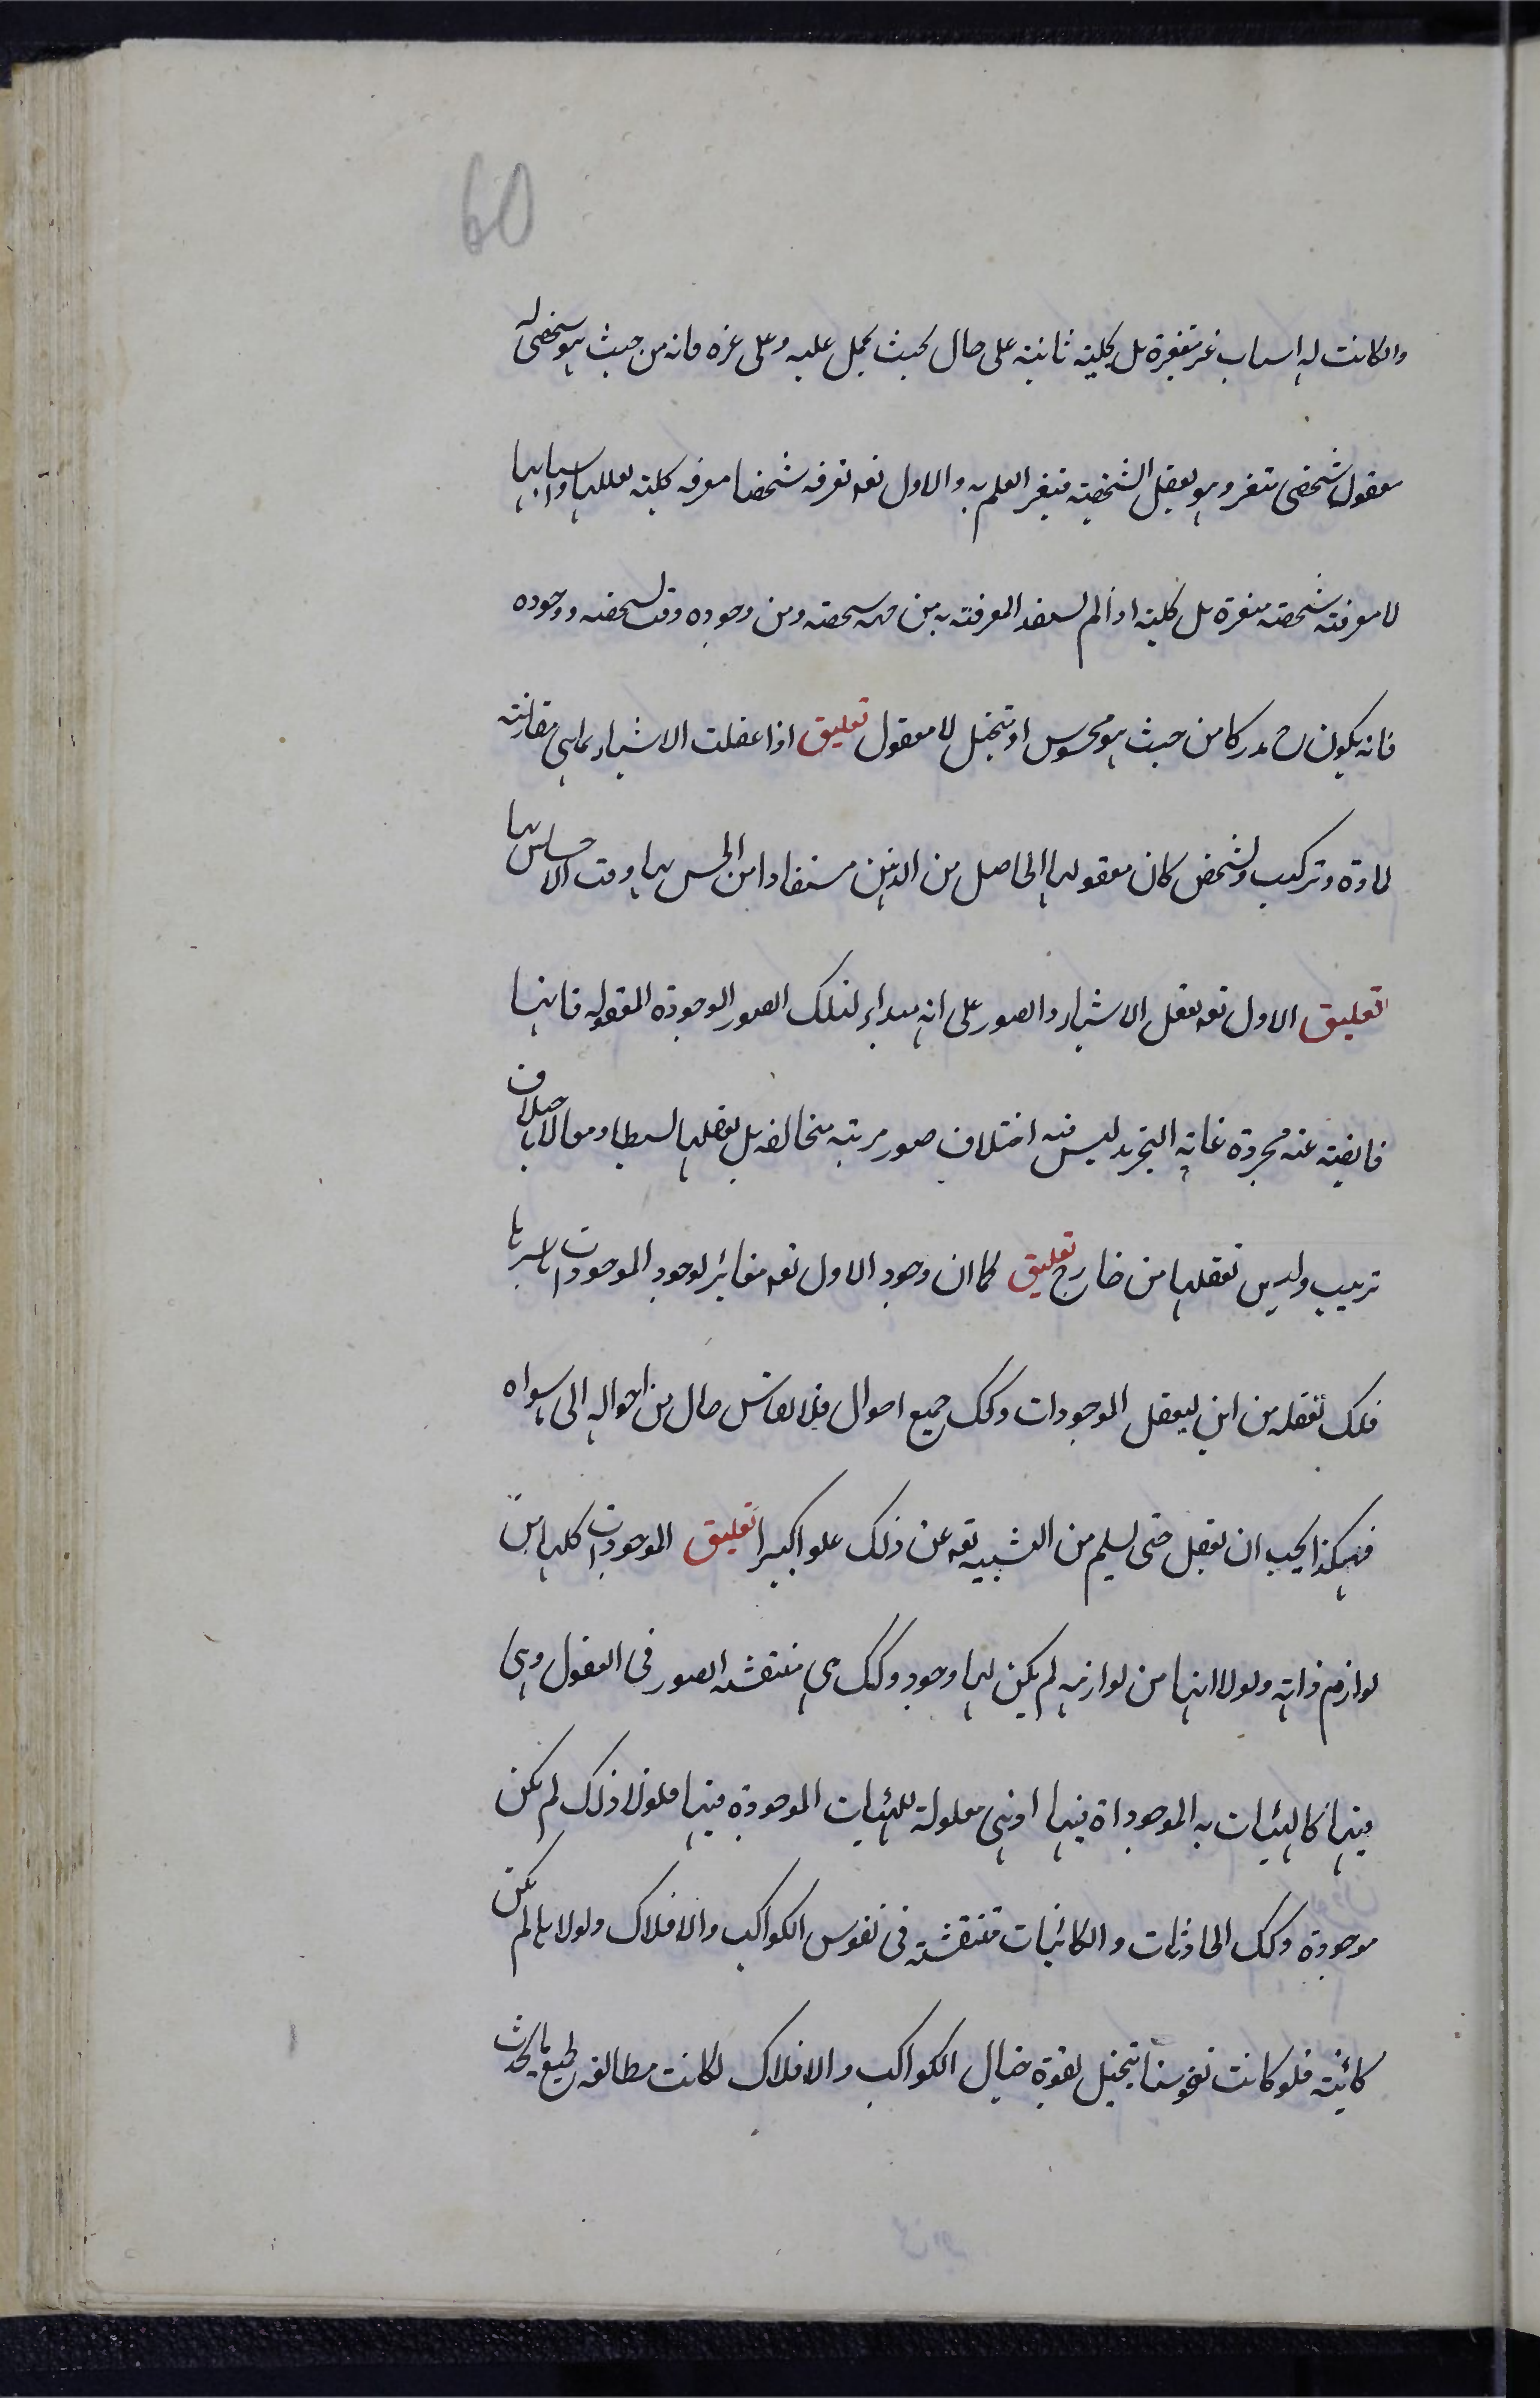 60
والكانت له اسباب غير متغيرة بل كلية ثابتة على حال بحيث يحمل عليه وعلى غيره فانه من حيث هو شخصى له
معقول شخصى متغير وهو يعقل الشخصية فيتغير العلم به والاول تعه تعرفه شخصيا معرفه كلية بعللها واسبابها
لا معرفته شخصية متغيرة بل كلية اذا لم يستفد المعرفة به من جهة شخصيته ومن وجوده وقت شخصه ووجوده
فانه يكون ح مدركا من حيث هو محسوس او متخيل لا معقول تعليق اذا عقلت الاشياء بما هى مقارنته
لمادة وتركيب وتشخص كان معقولها الحاصل من الذهن مستفادا من الحس بها وقت الاحساس بها
تعليق الاول تعه يعقل الاشياء والصور على انه مبداء لتلك الصور الموجودة المعقوله فانها
فايضة عنه مجردة غاية التجريد ليس فيه اختلاف صور مرتبه متخالفه بل يعقلها بسيطا ومعا لا باختلاف
ترتيب وليس تعقلها من خارج تعليق كما ان وجود الاول تعه مغائر لوجود الموجودات باسرها
فلك تعقله من اين ليعقل الموجودات وكك جميع احوال فلا يقاس حال من احواله الى ما سواه
فهكذا يجب ان يعقل حتى يسلم من التشبيه تعه عن ذلك علوا كبيرا تعليق الموجودات كلها من
لوازم ذاته ولولا انها من لوازمه لم يكن لها وجود وكك هى منتقشه الصور فى العقول وهى
فيها كالهيئات به الموجوداة فيها اذ هى معلولة للهيئات الموجودة فيها فلولا ذلك لم تكن
موجودة وكك الحادثات والكائنات منتقشته فى نفوس الكواكب والافلاك ولولا ها لم تكن
كائنته فلو كانت نفوسنا تتخيل بقوة خيال الكواكب والافلاك لكانت مطالعه لجميع ما يحدث